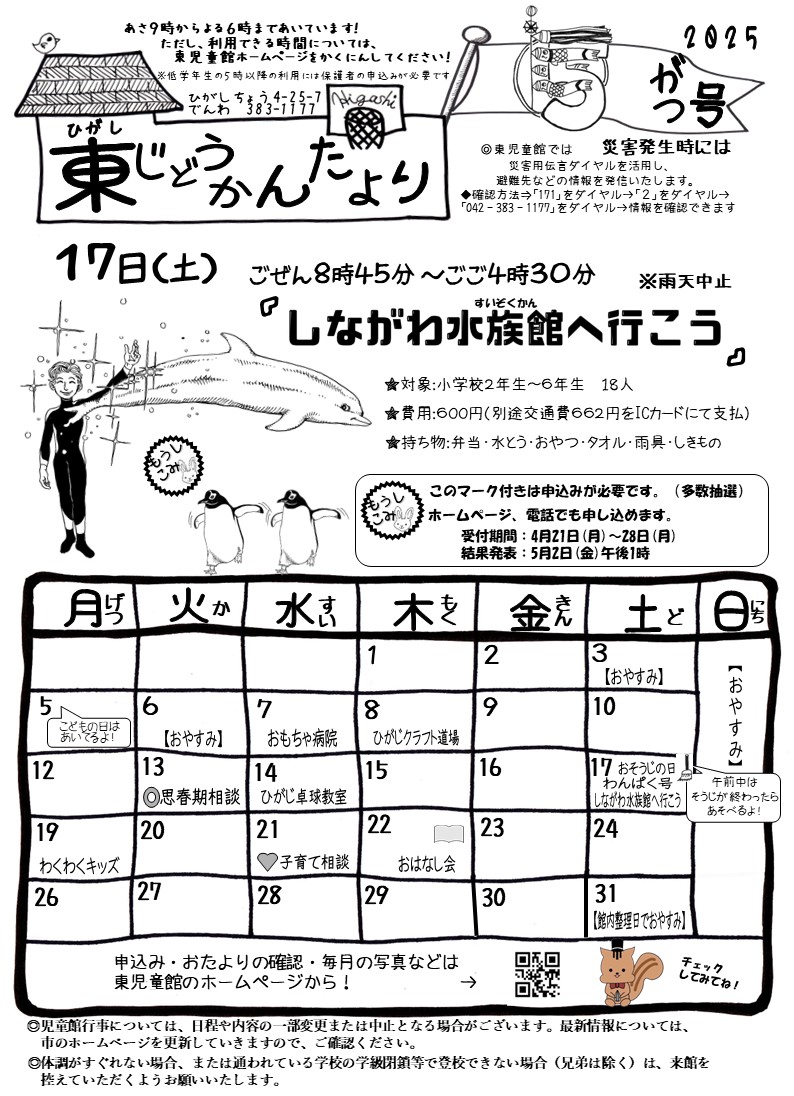 あさ9時からよる6時まであいています!
ただし、利用できる時間については、
東児童館ホームページをかくにんしてください!
※低学年生の5時以降の利用には保護者の申込みが必要です
ひがしちょう4-25-7
でんわ 383-1177
Higashi
ひがし
東じどうかんたより
2025
5がつ号
◎東児童館では 災害発生時には
災害用伝言ダイヤルを活用し、
避難先などの情報を発信いたします。
◆確認方法⇒「171」をダイヤル→「2」をダイヤル→
「042－383－1177」をダイヤル→情報を確認できます
17日(土) ごぜん8時45分～ごご4時30分 ※雨天中止
すいぞくかん
『しながわ水族館へ行こう』
★対象:小学校2年生～6年生 18人
★費用:600円(別途交通費662円をICカードにて支払)
★持ち物:弁当・水とう・おやつ・タオル・雨具・しきもの
もうしこみ
もうしこみ
このマーク付きは申込みが必要です。(多数抽選)
ホームページ、電話でも申し込めます。
受付期間：4月21日(月)～28日(月)
結果発表：5月2日(金)午後1時
月げつ 火か 水すい 木もく 金きん 土ど 日にち
1 2 3
【おやすみ】
【おやすみ】
5 6 7 8 9 10
こどもの日は
あいてるよ!
【おやすみ】 おもちゃ病院 ひがじクラフト道場
12 13 14 15 16 17 おそうじの日
わんぱく号
しながわ水族館へ行こう
◎思春期相談 ひがじ卓球教室
午前中は
そうじが終わったら
あそべるよ!
19 20 21 22 23 24
わくわくキッズ 子育て相談 おはなし会
26 27 28 29 30 31
【館内整理日でおやすみ】
申込み・おたよりの確認・毎月の写真などは
東児童館のホームページから！ →
チェック
してみてね!
◎児童館行事については、日程や内容の一部変更または中止となる場合がございます。最新情報については、
市のホームページを更新していきますので、ご確認ください。
◎体調がすぐれない場合、または通われている学校の学級閉鎖等で登校できない場合（兄弟は除く）は、来館を
控えていただくようお願いいたします。